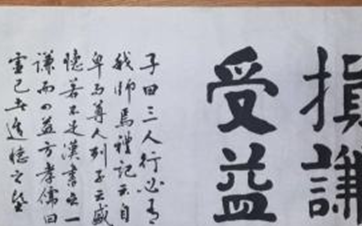 損謙
受益
子曰三人行必有
我師焉禮記云自
卑而尊人列子云盛
德若不足漢書云一
謙而四益方孝儒曰
虛己者進德之基